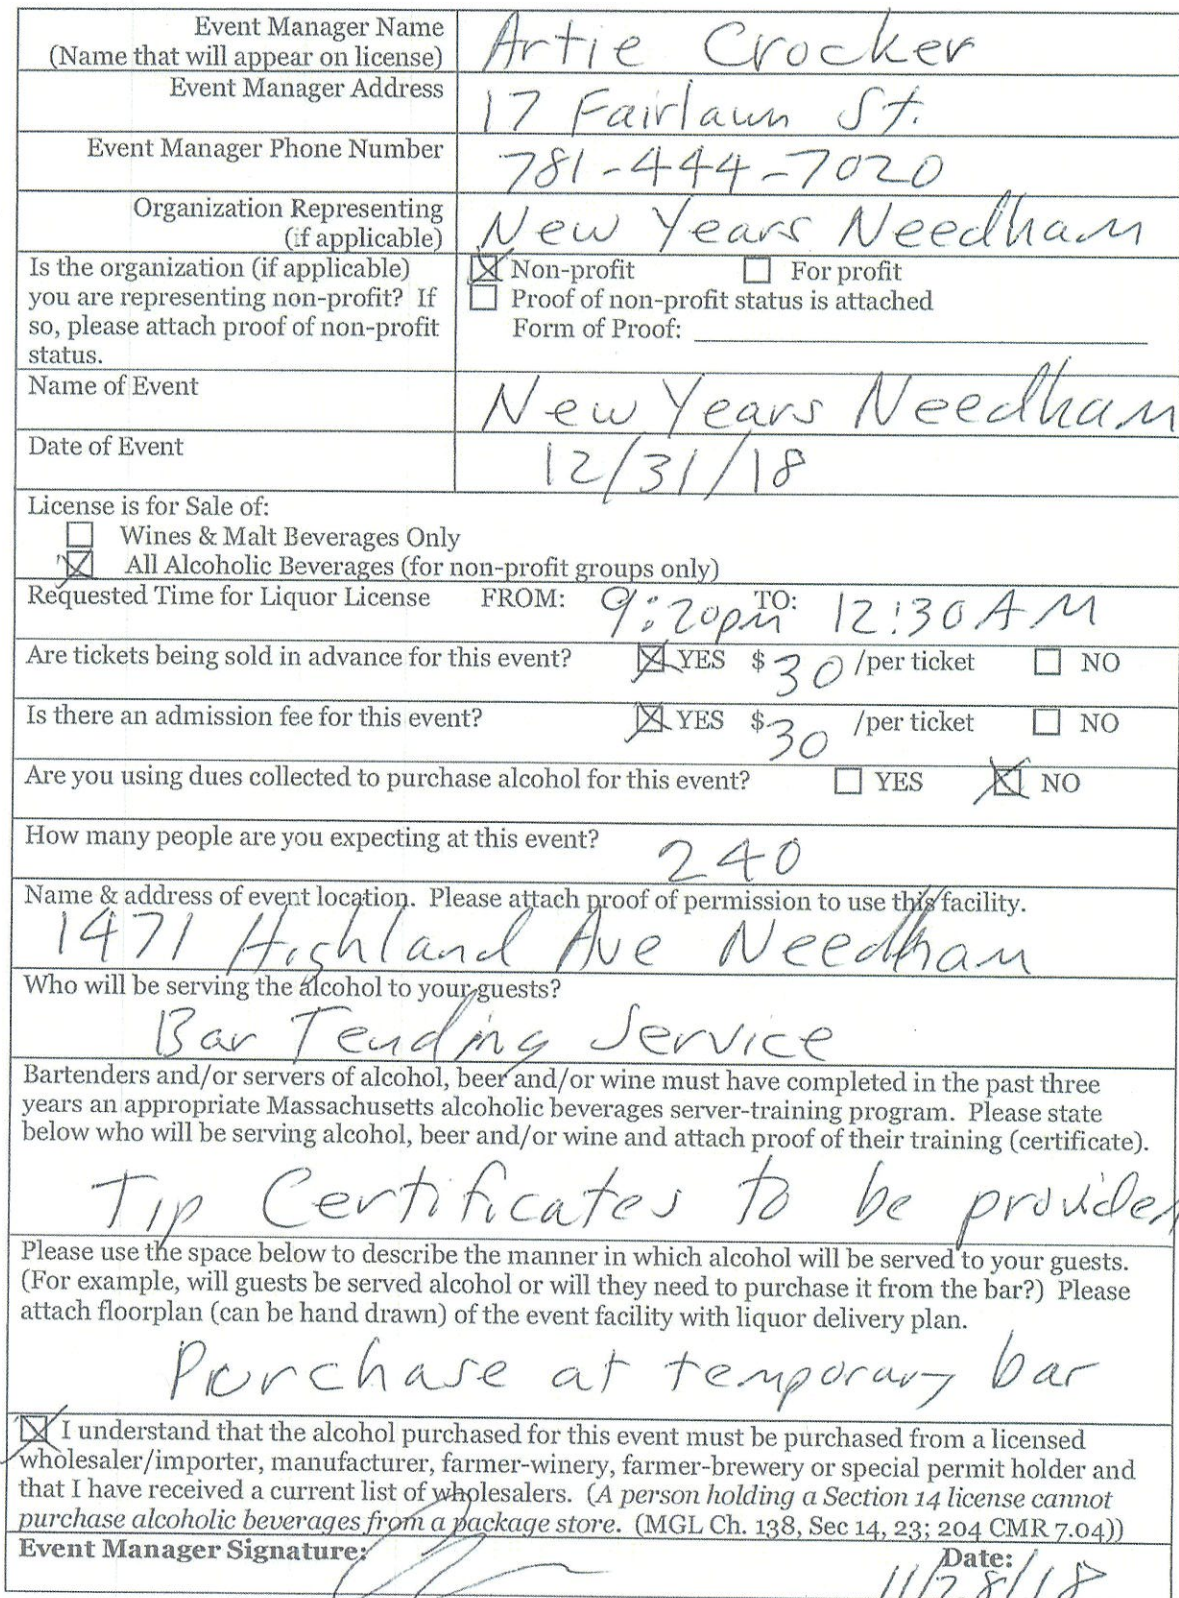 Event Manager Name
(Name that will appear on license)
Artie Crocker
Event Manager Address
17 Fairlawn St.
Event Manager Phone Number
781-444-7020
Organization Representing
(if applicable)
New Years Needham
Is the organization (if applicable)
you are representing non-profit? If
so, please attach proof of non-profit
status.
Non-profit For profit
Proof of non-profit status is attached
Form of Proof:
Name of Event
New Years Needham
Date of Event
12/31/18
License is for Sale of:
Wines & Malt Beverages Only
All Alcoholic Beverages (for non-profit groups only)
Requested Time for Liquor License FROM: 9:20pm TO: 12:30 AM
Are tickets being sold in advance for this event? YES $30 /per ticket NO
Is there an admission fee for this event? YES $30 /per ticket NO
Are you using dues collected to purchase alcohol for this event? YES NO
How many people are you expecting at this event? 240
Name & address of event location. Please attach proof of permission to use this facility.
1471 Highland Ave Needham
Who will be serving the alcohol to your guests?
Bar Tending Service
Bartenders and/or servers of alcohol, beer and/or wine must have completed in the past three
years an appropriate Massachusetts alcoholic beverages server-training program. Please state
below who will be serving alcohol, beer and/or wine and attach proof of their training (certificate).
Tip Certificates to be provided
Please use the space below to describe the manner in which alcohol will be served to your guests.
(For example, will guests be served alcohol or will they need to purchase it from the bar?) Please
attach floorplan (can be hand drawn) of the event facility with liquor delivery plan.
Purchase at temporary bar
I understand that the alcohol purchased for this event must be purchased from a licensed
wholesaler/importer, manufacturer, farmer-winery, farmer-brewery or special permit holder and
that I have received a current list of wholesalers. (A person holding a Section 14 license cannot
purchase alcoholic beverages from a package store. (MGL Ch. 138, Sec 14, 23; 204 CMR 7.04))
Event Manager Signature: Date: 11/28/18